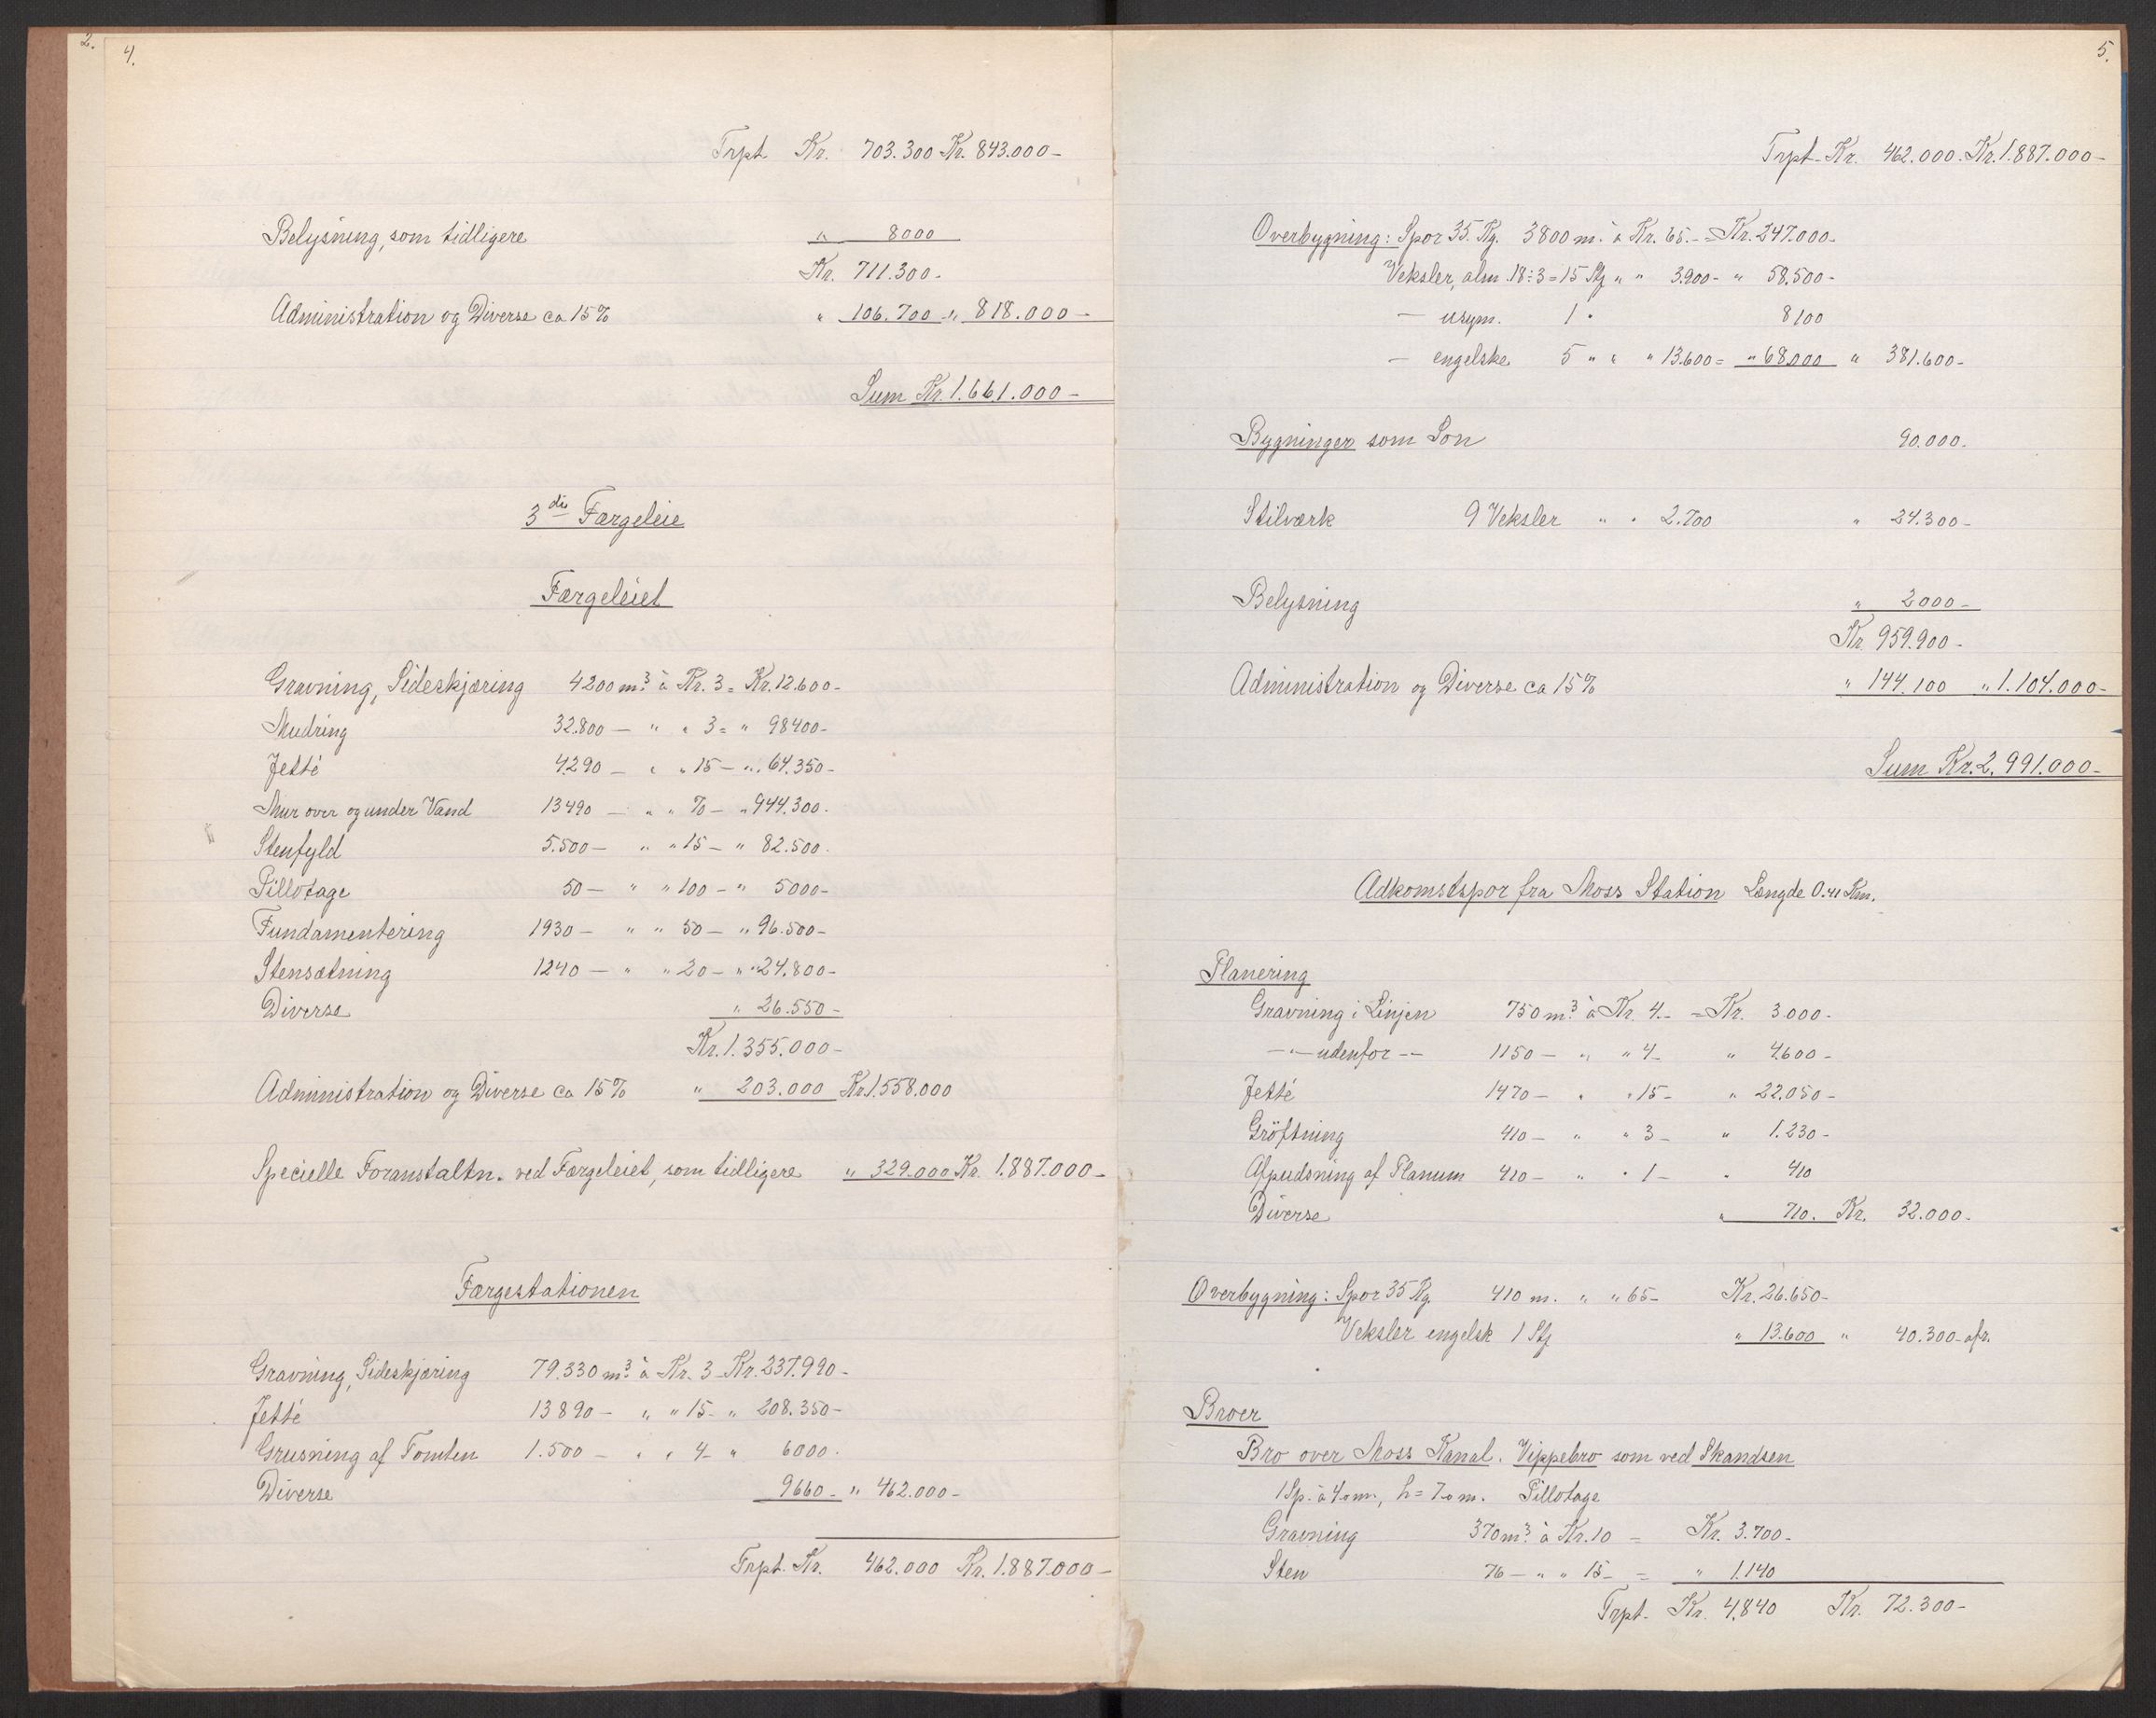 2.
4.
Trpt Kr. 703.300 Kr. 843.000-
Belysning, som tidligere " 8000
Kr. 711.300-
Administration og Diverse ca 15% " 106.700 - " 818.000-
Sum Kr. 1.661.000-
3die Færgeleie
Færgeleiet
Gravning, Sideskjæring 4200 m.3 à Kr. 3 = Kr. 12.600-
Mudring 32.800 — " " 3 = " 98400-
Jetté 4290 — " " 15 — " 64.350-
Mur over og under Vand 13490 — " " 70 — " 944.300.
Stenfyld 5.500 — " " 15 — " 82.500.
Pillotage 50 — " " 100 — " 5000-
Fundamentering 1930 — " " 50 — " 96.500-
Stensætning 1240 — " " 20 — " 24.800-
Diverse " 26.550-
Kr. 1.355.000-
Administration og Diverse ca 15% " 203.000 Kr. 1.558.000
Specielle Foranstaltn. ved Færgeleiet, som tidligere " 329.000 Kr. 1.887.000-
Færgestationen
Gravning, Sideskjæring 79.330 m.3 à Kr. 3 - Kr. 237.990-
Jetté 13890 — " " 15 - " 208.350-
Grusning af Tomten 1.500 — " " 4 - " 6000.
Diverse 9660 - " 462.000-
Trpt. Kr. 462.000 Kr. 1.887.000-
5.
Trpt. Kr. 462.000. Kr. 1.887.000-
Overbygning: Spor 35 Kg. 3800 m. à Kr. 65.- = Kr. 247.000-
Veksler, alm. 18÷3=15 Stj " " 3.900- " 58.500-
— usym. 1 " 8100
— engelske 5 " " " 13.600 = " 68.000 " 381.600-
Bygninger som Son 90.000.
Stilværk 9 Veksler " " 2.700 " 24.300-
Belysning " 2000-
Kr. 959.900-
Administration og Diverse ca 15% " 144.100 " 1.104.000-
Sum Kr. 2.991.000-
Adkomstspor fra Moss Station Længde 0.41 Km.
Planering
Gravning i Linjen 750 m.3 à Kr. 4.- = Kr. 3.000-
—"— udenfor -- 1150 — " " 4- " 4.600-
Jetté 1470 — " " 15- " 22.050-
Gröftning 410 — " " 3- " 1.230-
Afpudsning af Planum 410 — " " 1- " 410
Diverse " 710. Kr. 32.000.
Overbygning: Spor 35 Kg. 410 m. " " 65- Kr. 26.650-
Veksler engelsk 1 Stj " 13.600 " 40.300 - afr.
Broer
Bro over Moss Kanal. Vippebro som ved Skandsen
1 Sp. à 4.0 m., h = 7.0 m. Pillotage
Gravning 370 m.3 à Kr. 10 = Kr. 3.700-
Sten 76 — " " 15- = " 1.140
Trpt. Kr. 4.840 Kr. 72.300-